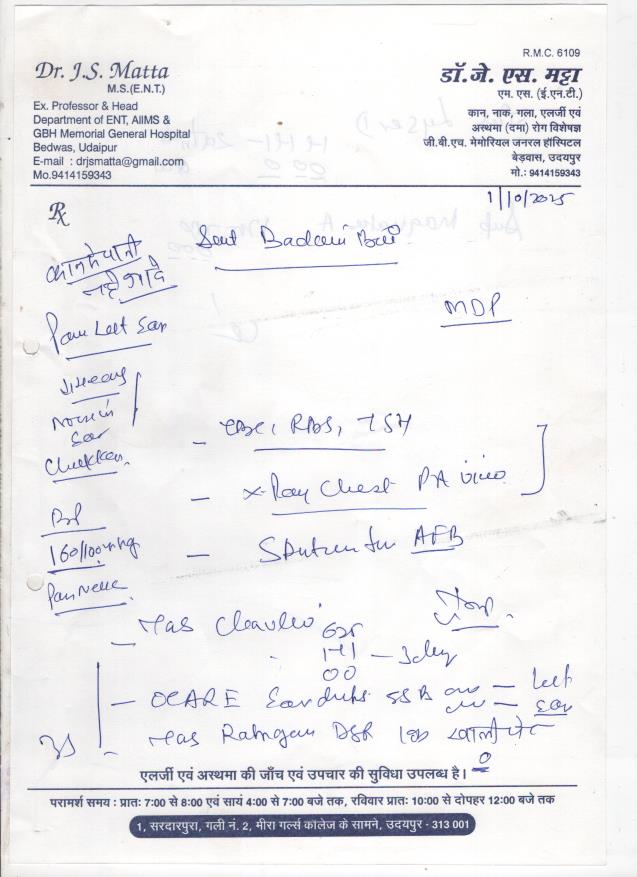 R.M.C. 6109
Dr. J.S. Matta
M.S.(E.N.T.)
Ex. Professor & Head
Department of ENT, AIIMS &
GBH Memorial General Hospital
Bedwas, Udaipur
E-mail : drjsmatta@gmail.com
Mo.9414159343
डॉ. जे. एस. मट्टा
एम. एस. (ई.एन.टी.)
कान, नाक, गला, एलर्जी एवं
अस्थमा (दमा) रोग विशेषज्ञ
जी.बी.एच. मेमोरियल जनरल हॉस्पिटल
बेड़वास, उदयपुर
मो.: 9414159343
1/10/2025
Rx
Smt Badami Bai
कान में पानी
नहीं जावे
Pain Left Ear
MDP
Noise in
Ear
- CBC, RBS, TSH
- X-Ray Chest PA view
BP
160/100 mmHg
- Sputum for AFB
Pain Neck
- Tab
625
1-1-1 - 3 day
00
- OCARE Ear drops - Left
Ear
- Tab DSR खाली पेट
0
एलर्जी एवं अस्थमा की जाँच एवं उपचार की सुविधा उपलब्ध है।
परामर्श समय : प्रातः 7:00 से 8:00 एवं सायं 4:00 से 7:00 बजे तक, रविवार प्रातः 10:00 से दोपहर 12:00 बजे तक
1, सरदारपुरा, गली नं. 2, मीरा गर्ल्स कॉलेज के सामने, उदयपुर - 313 001